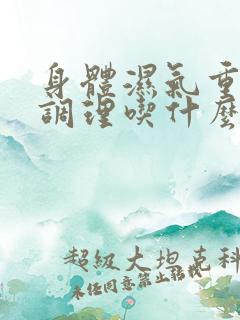 身體濕氣重
調理喫什麼
超級大坦克科
未經同意禁止搬